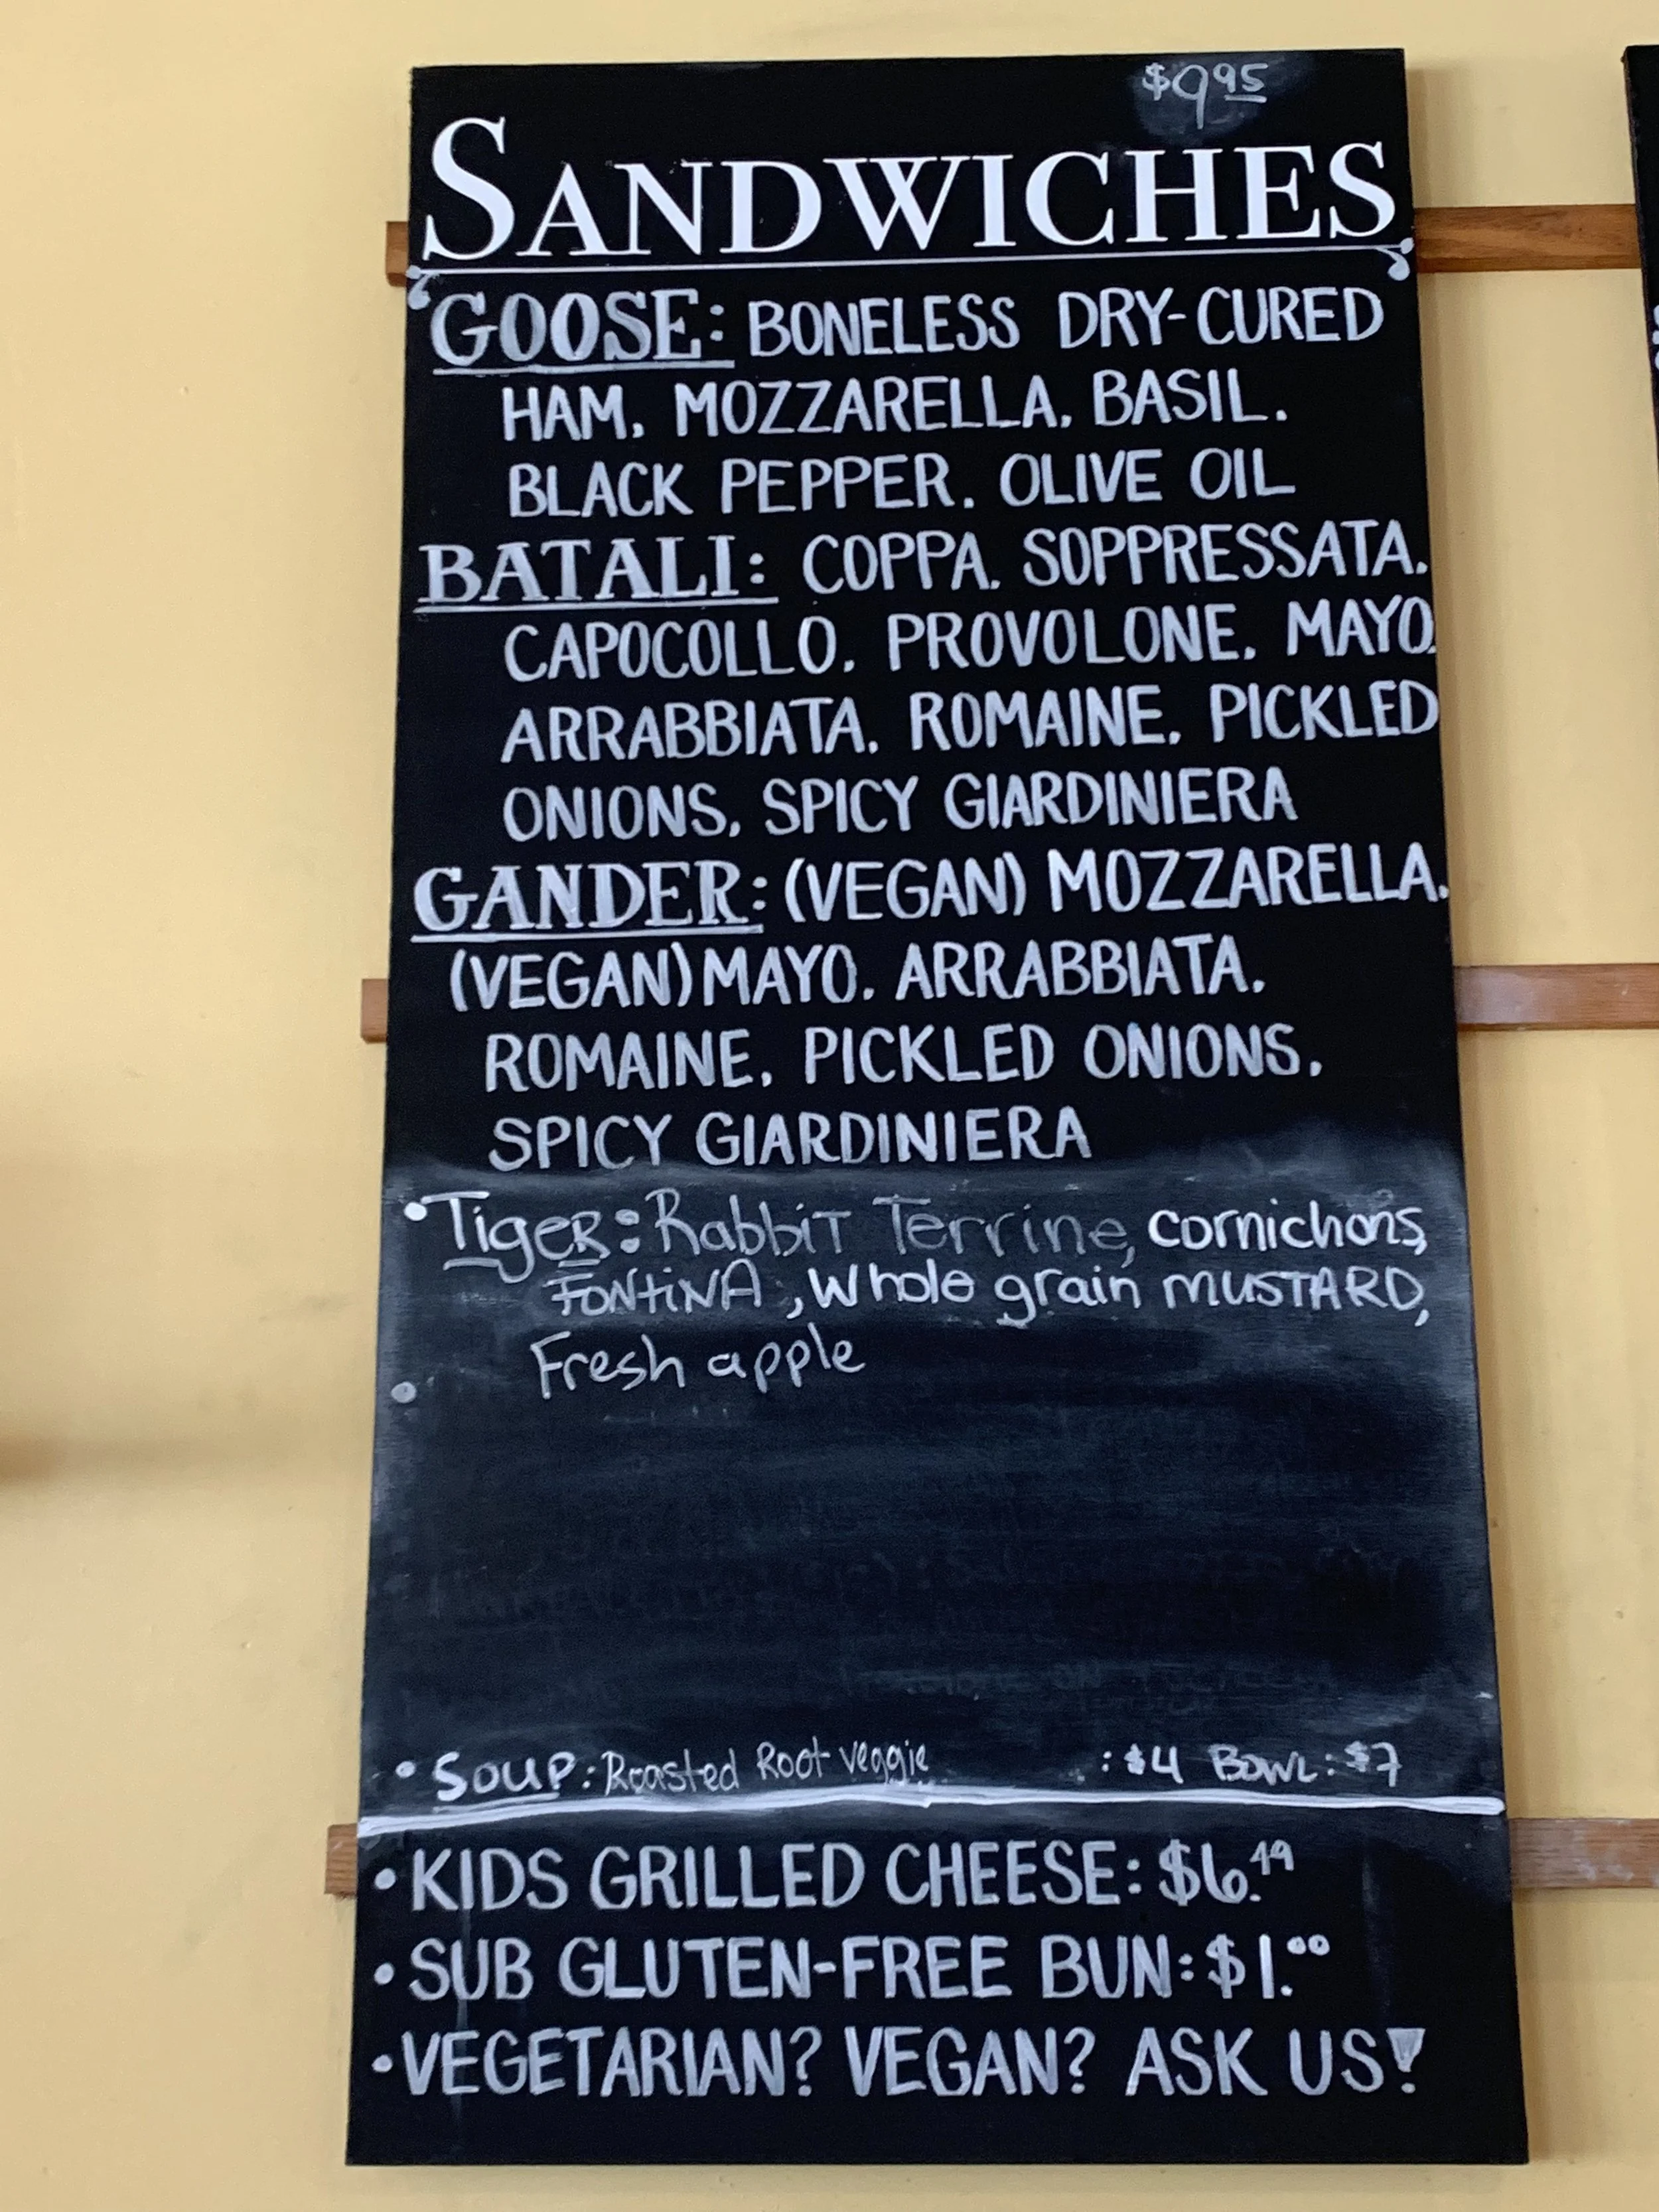 $9.95
SANDWICHES
GOOSE: BONELESS DRY-CURED
HAM, MOZZARELLA, BASIL,
BLACK PEPPER, OLIVE OIL
BATALI: COPPA, SOPPRESSATA,
CAPOCOLLO, PROVOLONE, MAYO,
ARRABBIATA, ROMAINE, PICKLED
ONIONS, SPICY GIARDINIERA
GANDER: (VEGAN) MOZZARELLA,
(VEGAN) MAYO, ARRABBIATA,
ROMAINE, PICKLED ONIONS,
SPICY GIARDINIERA
• TigeR: RabbiT Terrine, cornichons,
FONtiNA, Whole grain MUSTARD,
Fresh apple
•
• SOUP: Roasted Root veggie : $4 BOWL: $7
• KIDS GRILLED CHEESE: $6.49
• SUB GLUTEN-FREE BUN: $1.00
• VEGETARIAN? VEGAN? ASK US!